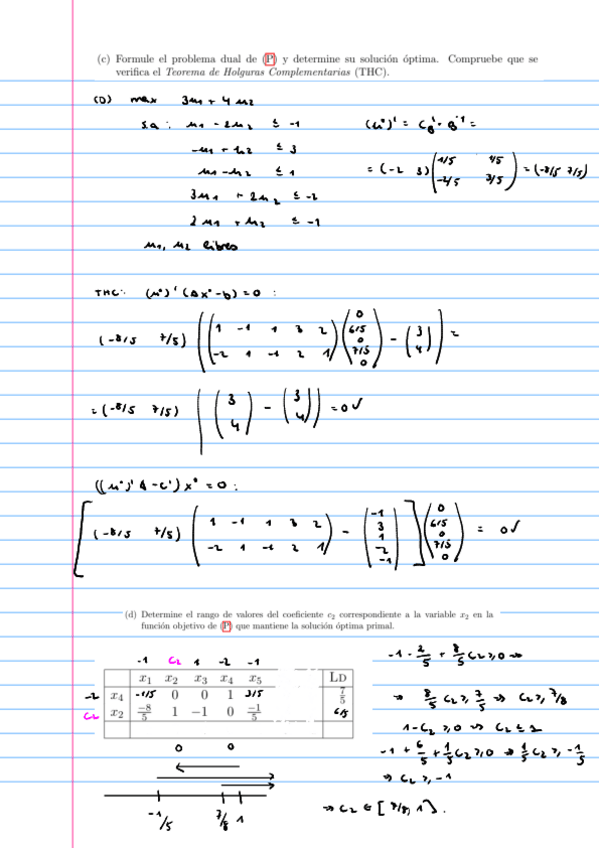 (c) Formule el problema dual de (P) y determine su solución óptima. Compruebe que se
verifica el Teorema de Holguras Complementarias (THC).
(D) max 3u₁ + 4u₂
s.a: u₁ - 2u₂ ≤ -1
-u₁ + u₂ ≤ 3
u₁ - u₂ ≤ 1
3u₁ + 2u₂ ≤ -2
2u₁ + u₂ ≤ -1
u₁, u₂ libres
(u*)' = c'_B · B⁻¹ =
= (-2 3) (1/5 1/5
-2/5 3/5) = (-8/5 7/5)
THC: (u*)' (Ax* - b) = 0 :
(-8/5 7/5) ((1 -1 1 3 2
-2 1 -1 2 1) (0
6/5
0
7/5
0) - (3
4)) =
= (-8/5 7/5) ((3
4) - (3
4)) = 0 ✓
((u*)' A - c') x* = 0 :
[(-8/5 7/5) (1 -1 1 3 2
-2 1 -1 2 1) - (-1
3
1
-2
-1)] (0
6/5
0
7/5
0) = 0 ✓
(d) Determine el rango de valores del coeficiente c₂ correspondiente a la variable x₂ en la
función objetivo de (P) que mantiene la solución óptima primal.
-1 c₂ 1 -2 -1
x₁ x₂ x₃ x₄ x₅ LD
-2 x₄ -1/5 0 0 1 3/5 7/5
c₂ x₂ -8/5 1 -1 0 -1/5 6/5
0 0
-1/5 7/8 1
-1 - 2/5 + 8/5 c₂ ≥ 0 ⇒
⇒ 8/5 c₂ ≥ 7/5 ⇒ c₂ ≥ 7/8
1 - c₂ ≥ 0 ⇒ c₂ ≤ 1
-1 + 6/5 + 1/5 c₂ ≥ 0 ⇒ 1/5 c₂ ≥ -1/5
⇒ c₂ ≥ -1
⇒ c₂ ∈ [7/8, 1].